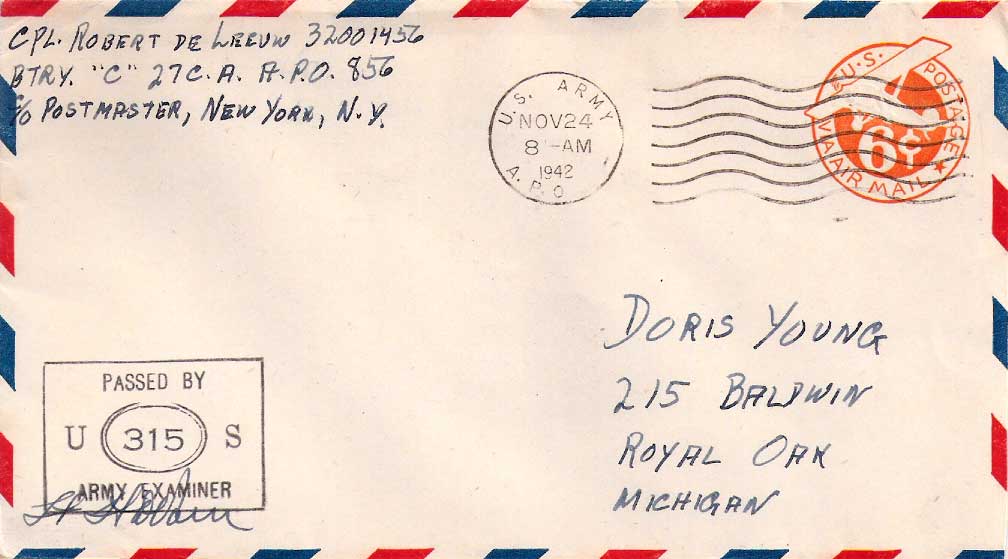 CPL. ROBERT DE LEEUW 32001456
BTRY. "C" 27 C.A. A.P.O. 856
C/O POSTMASTER, NEW YORK, N.Y.
U.S. ARMY
NOV 24
8 - AM
1942
A.P.O
U.S. POSTAGE
6¢
VIA AIR MAIL
DORIS YOUNG
215 BALDWIN
ROYAL OAK
MICHIGAN
PASSED BY
U 315 S
ARMY EXAMINER